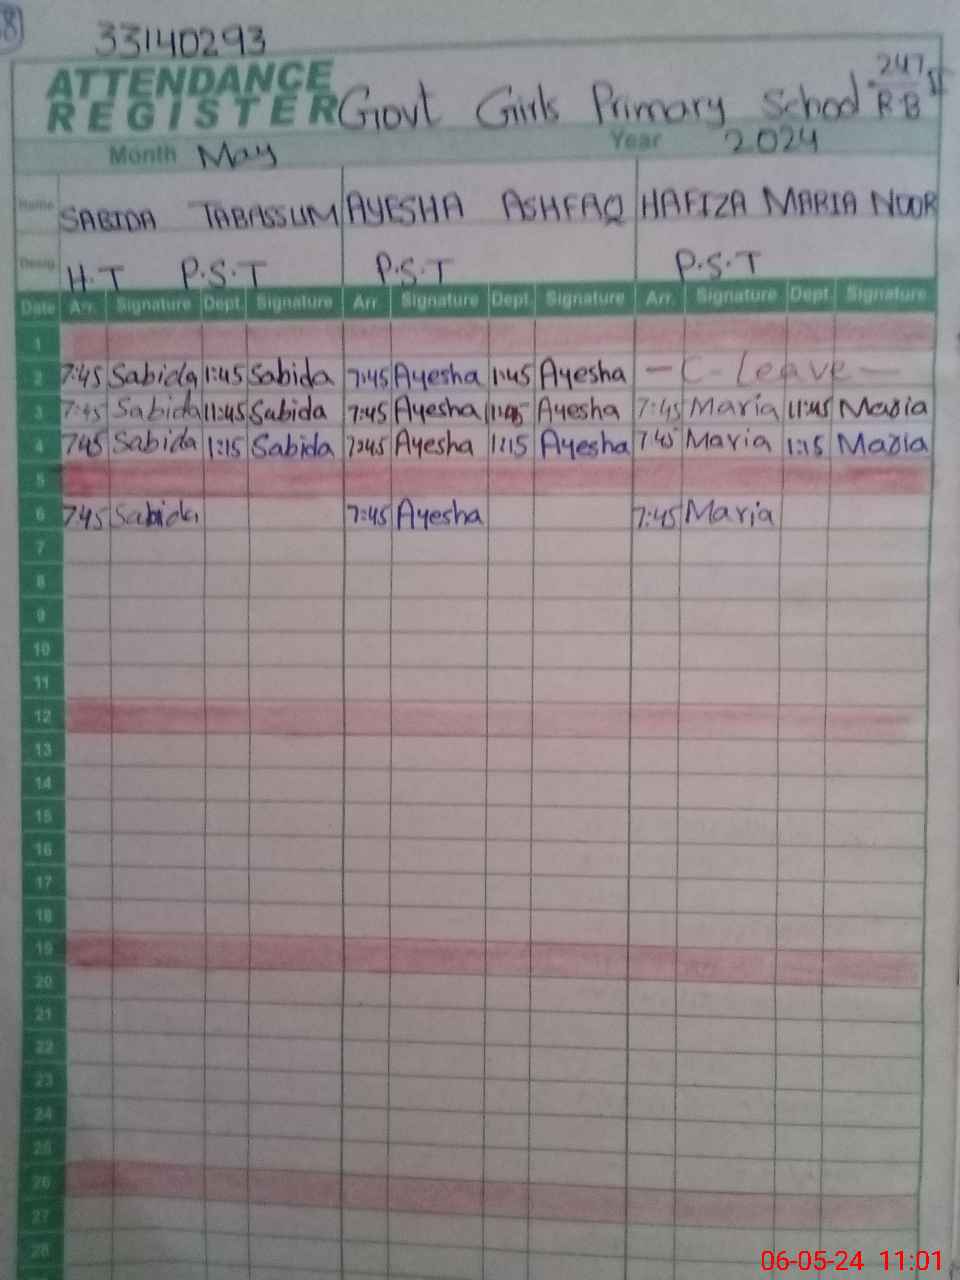 8
33140293
ATTENDANCE REGISTER Govt Girls Primary School 247/RB II
Month May Year 2024
Name SABIDA TABASSUM AYESHA ASHFAQ HAFIZA MARIA NOOR
Desig. H.T P.S.T P.S.T P.S.T
Date Arr. Signature Dept. Signature Arr. Signature Dept. Signature Arr. Signature Dept. Signature
1
2 7:45 Sabida 1:45 Sabida 7:45 Ayesha 1:45 Ayesha — C- Leave —
3 7:45 Sabida 11:45 Sabida 7:45 Ayesha 11:45 Ayesha 7:45 Maria 11:45 Maria
4 745 Sabida 1:15 Sabida 7:45 Ayesha 1:15 Ayesha 7:45 Maria 1:15 Maria
5
6 7:45 Sabida 7:45 Ayesha 7:45 Maria
7
8
9
10
11
12
13
14
15
16
17
18
19
20
21
22
23
24
25
26
27
28
06-05-24 11:01